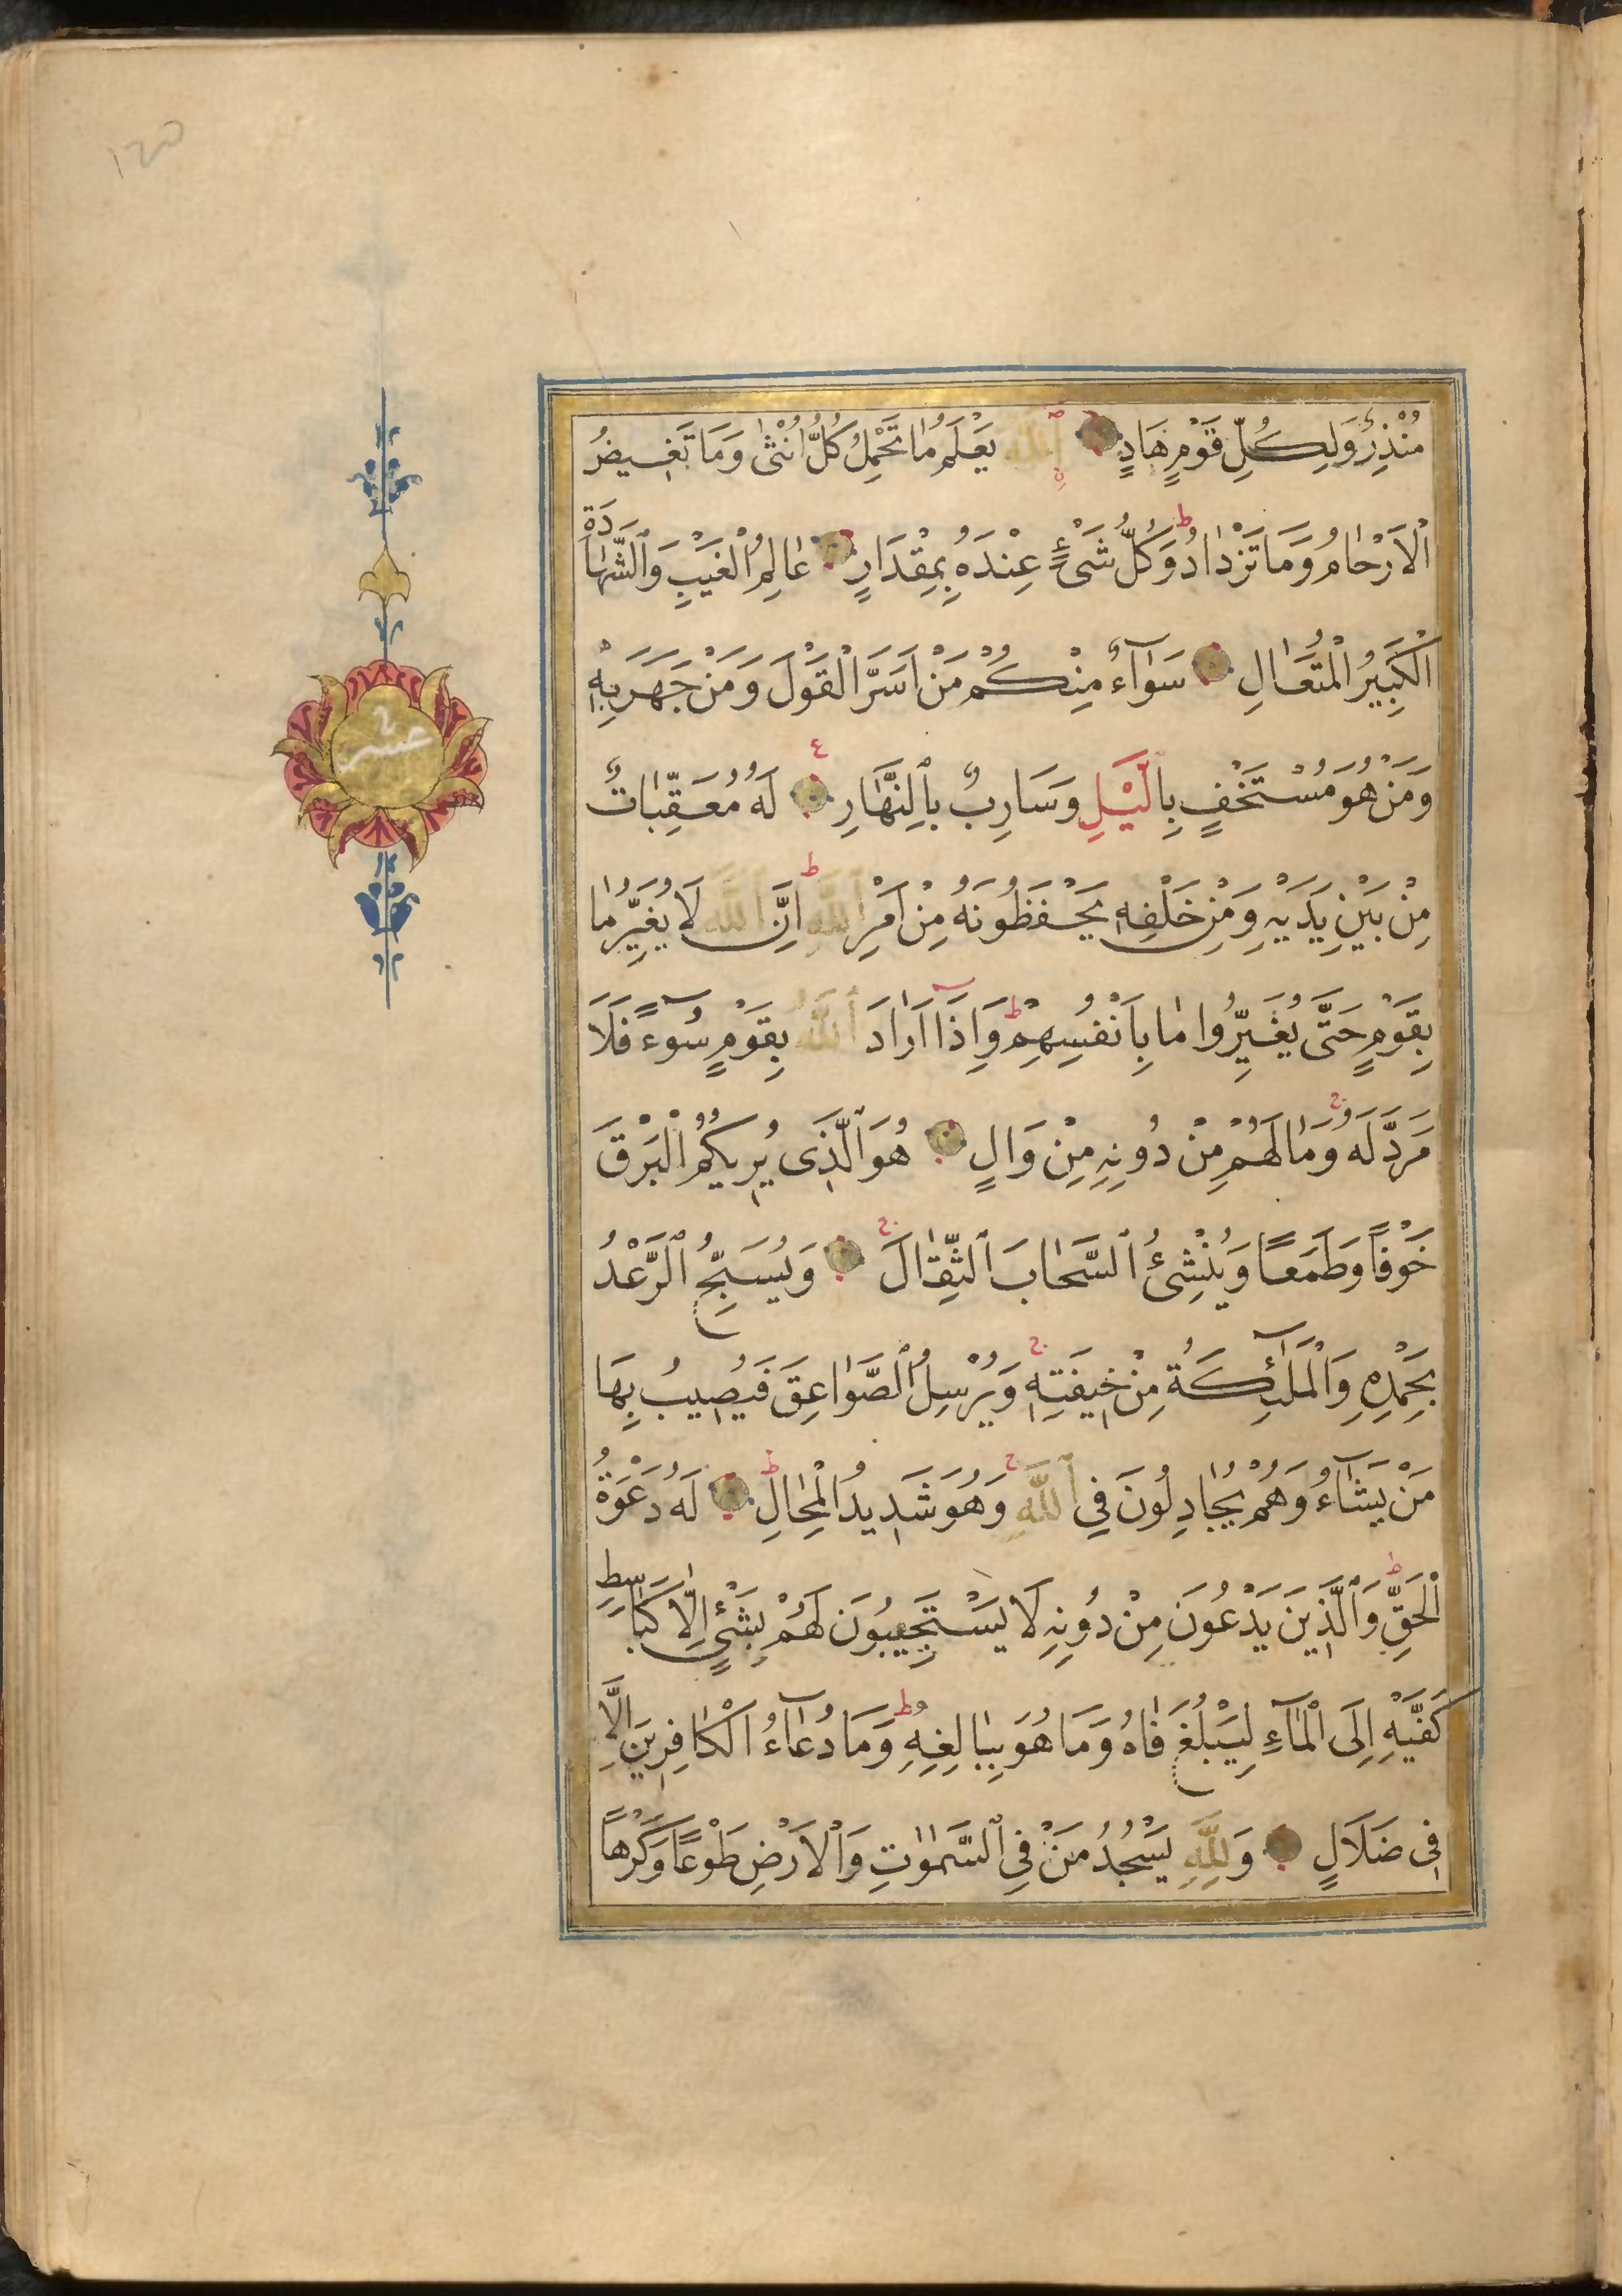 مُنْذِرٌ وَلِكُلِّ قَوْمٍ هَادٍ اَللّٰهُ يَعْلَمُ مَا تَحْمِلُ كُلُّ اُنْثٰى وَمَا تَغِيضُ
الْاَرْحَامُ وَمَا تَزْدَادُ ط وَكُلُّ شَیْءٍ عِنْدَهُ بِمِقْدَارٍ عَالِمُ الْغَيْبِ وَالشَّهَادَةِ
الْكَبِيرُ الْمُتَعَالِ سَوَآءٌ مِنْكُمْ مَنْ اَسَرَّ الْقَوْلَ وَمَنْ جَهَرَ بِهٖ
وَمَنْ هُوَ مُسْتَخْفٍ بِالَّيْلِ وَسَارِبٌ بِالنَّهَارِ لَهُ مُعَقِّبَاتٌ
مِنْ بَيْنِ يَدَيْهِ وَمِنْ خَلْفِهٖ يَحْفَظُونَهُ مِنْ اَمْرِ اللّٰهِ ط اِنَّ اللّٰهَ لَا يُغَيِّرُ مَا
بِقَوْمٍ حَتَّى يُغَيِّرُوا مَا بِاَنْفُسِهِمْ ط وَاِذَا اَرَادَ اللّٰهُ بِقَوْمٍ سُوءً فَلَا
مَرَدَّ لَهُ ج وَمَا لَهُمْ مِنْ دُونِهِ مِنْ وَالٍ هُوَ الَّذٖى يُرٖيكُمُ الْبَرْقَ
خَوْفًا وَطَمَعًا وَيُنْشِئُ السَّحَابَ الثِّقَالَ ج وَيُسَبِّحُ الرَّعْدُ
بِحَمْدِهِ وَالْمَلٰٓئِكَةُ مِنْ خٖيفَتِهٖ ج وَيُرْسِلُ الصَّوَاعِقَ فَيُصٖيبُ بِهَا
مَنْ يَشَآءُ وَهُمْ يُجَادِلُونَ فِي اللّٰهِ ج وَهُوَ شَدٖيدُ الْمِحَالِ ط لَهُ دَعْوَةُ
الْحَقِّ ط وَالَّذٖينَ يَدْعُونَ مِنْ دُونِهِ لَا يَسْتَجٖيبُونَ لَهُمْ بِشَیْءٍ اِلَّا كَبَاسِطِ
كَفَّيْهِ اِلَى الْمَآءِ لِيَبْلُغَ فَاهُ وَمَا هُوَ بِبَالِغِهِ ط وَمَا دُعَآءُ الْكَافِرٖينَ اِلَّا
فٖى ضَلَالٍ وَلِلّٰهِ يَسْجُدُ مَنْ فِي السَّمٰوٰتِ وَالْاَرْضِ طَوْعًا وَكَرْهًا